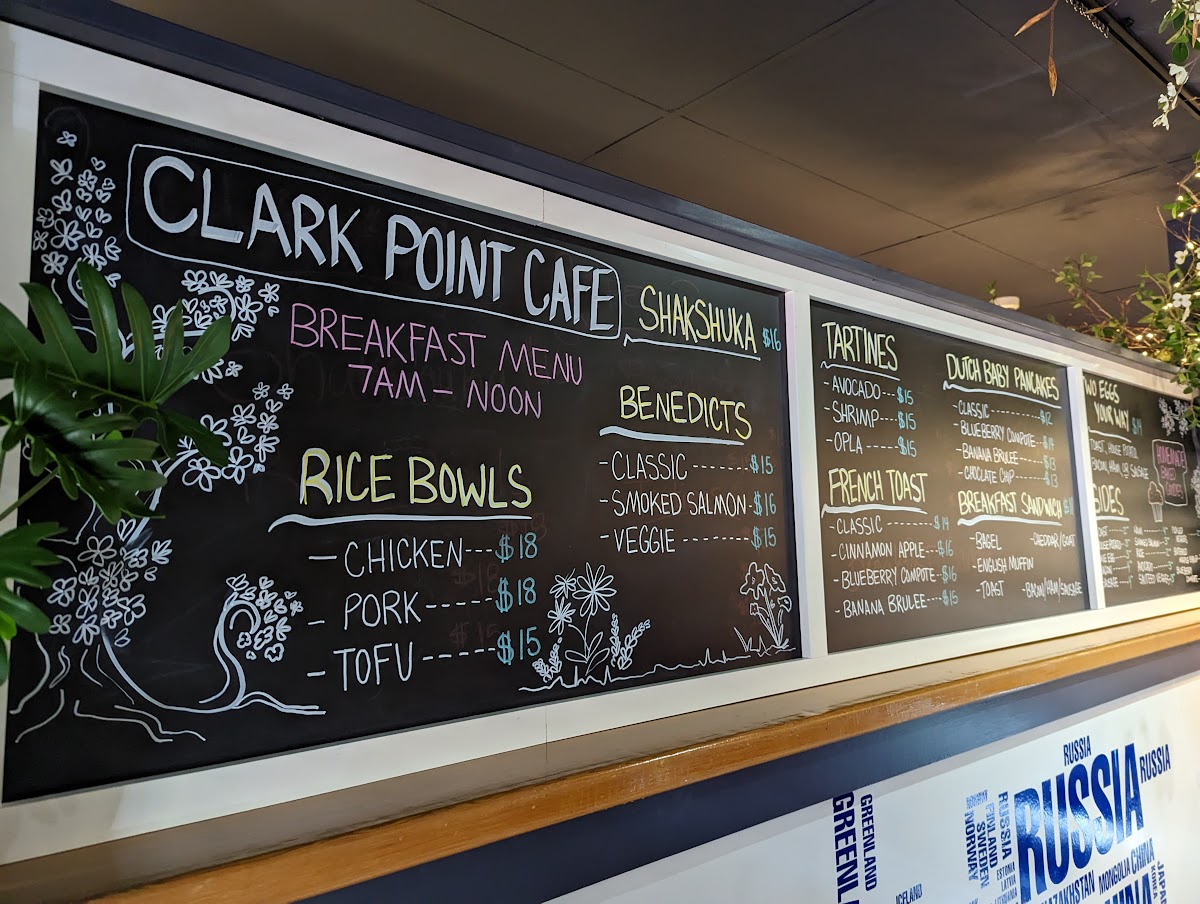 CLARK POINT CAFE
BREAKFAST MENU
7AM - NOON
RICE BOWLS
- CHICKEN --- $18
- PORK ----- $18
- TOFU ----- $15
SHAKSHUKA $16
BENEDICTS
- CLASSIC ------- $15
- SMOKED SALMON - $16
- VEGGIE ------- $15
TARTINES
- AVOCADO -- $15
- SHRIMP --- $15
- OPLA ---- $15
FRENCH TOAST
- CLASSIC ------- $14
- CINNAMON APPLE -- $16
- BLUEBERRY COMPOTE -- $16
- BANANA BRULEE --- $15
DUTCH BABY PANCAKES
- CLASSIC --------- $12
- BLUEBERRY COMPOTE --
- BANANA BRULEE --- $13
- CHOCLATE CHIP ---- $13
BREAKFAST SANDWICH
- BAGEL
- ENGLISH MUFFIN
- TOAST
- CHEDDAR/GOAT
- BACON/HAM/SAUSAGE
WO EGGS
YOUR WAY $14
TOAST, HOUSE POTATO,
BACON, HAM, OR SAUSAGE
SIDES
GREENLAND
GREENL
ICELAND
NORWAY
SWEDEN
FINLAND
RUSSIA
ESTONIA
LATVIA
RUSSIA
RUSSIA
RUSSIA
KAZAKHSTAN
MONGOLIA
CHINA
CHINA
KOREA
JAPA